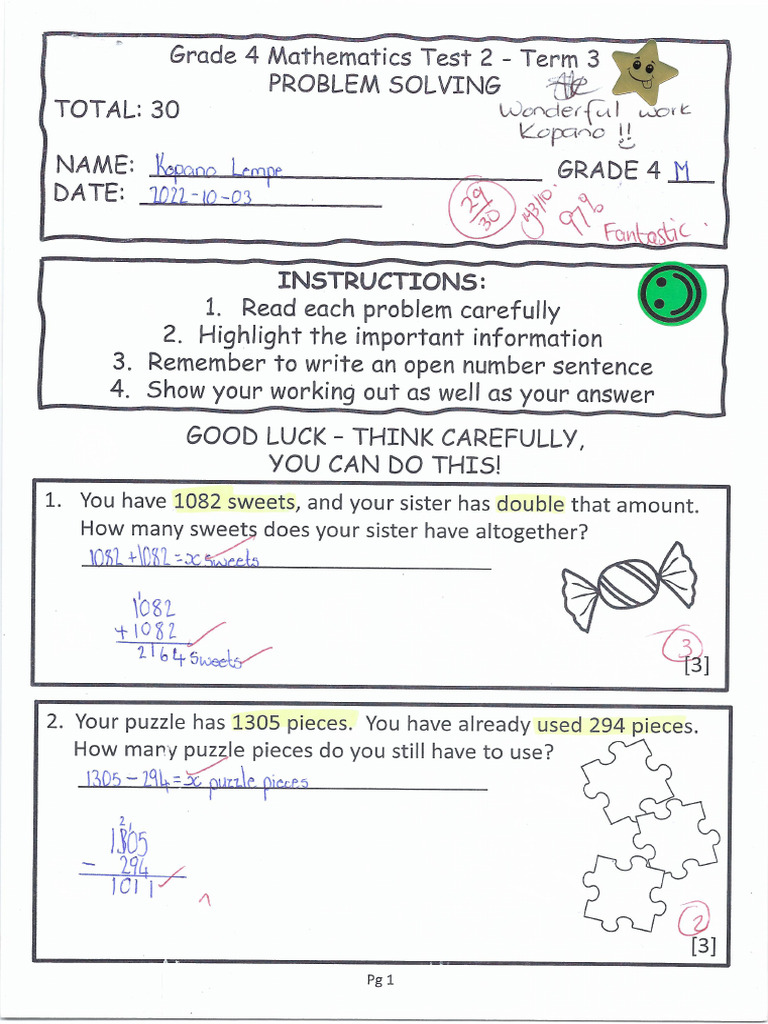 Grade 4 Mathematics Test 2 - Term 3
PROBLEM SOLVING
TOTAL: 30
Wonderful work
Kopano !!
NAME: Kopano Lempe GRADE 4 M
DATE: 2022-10-03
29
30
97%
Fantastic.
INSTRUCTIONS:
1. Read each problem carefully
2. Highlight the important information
3. Remember to write an open number sentence
4. Show your working out as well as your answer
GOOD LUCK – THINK CAREFULLY,
YOU CAN DO THIS!
1. You have 1082 sweets, and your sister has double that amount.
How many sweets does your sister have altogether?
1082 + 1082 = x sweets
1
1082
+ 1082
2164 sweets
3
[3]
2. Your puzzle has 1305 pieces. You have already used 294 pieces.
How many puzzle pieces do you still have to use?
1305 - 294 = x puzzle pieces
2 1
1305
- 294
1011
^
2
[3]
Pg 1